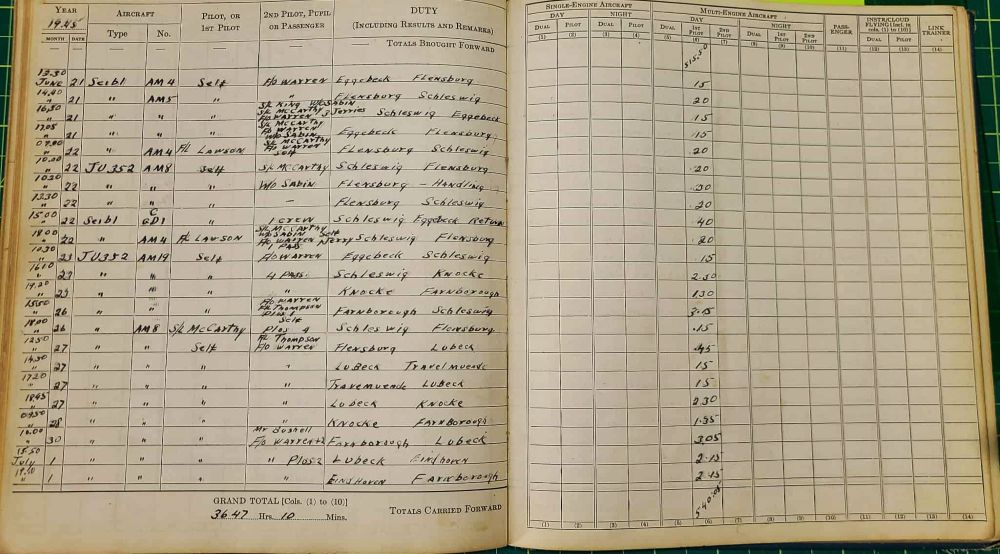 YEAR
1945
AIRCRAFT
PILOT, OR 1ST PILOT
2ND PILOT, PUPIL OR PASSENGER
DUTY (INCLUDING RESULTS AND REMARKS)
MONTH DATE Type No.
TOTALS BROUGHT FORWARD
SINGLE-ENGINE AIRCRAFT
MULTI-ENGINE AIRCRAFT
DAY NIGHT DAY NIGHT
DUAL PILOT DUAL PILOT DUAL 1ST PILOT 2ND PILOT DUAL 1ST PILOT 2ND PILOT
PASSENGER
INSTR/CLOUD FLYING [Incl. in cols. (1) to (10)]
DUAL PILOT
LINK TRAINER
(1) (2) (3) (4) (5) (6) (7) (8) (9) (10) (11) (12) (13) (14)
515.50
13.30
JUNE 21 Seibl AM 4 Self F/O WARREN Eggebeck Flensburg 15
14.40
" 21 " AM5 " " Flensburg Schleswig 20
S/L KING W/O SABIN
16.50 S/L McCARTHY
" 21 " " " F/O WARREN 3 Jerries Schleswig Eggebeck 15
17.05 S/L McCARTHY
F/O WARREN
" 21 " " " W/O SABIN Eggebeck Flensburg 15
07.00 S/L McCARTHY
F/O WARREN
" 22 " AM4 F/L LAWSON Self Flensburg Schleswig 20
10.00
" 22 JU352 AM8 Self S/L McCARTHY Schleswig Flensburg 20
10.20
" 22 " " " W/O SABIN Flensburg - Handling 30
13.30
" 22 " " " — Flensburg Schleswig 20
15.00
" 22 Seibl GD1 " 1 CREW Schleswig Eggebeck Return 40
18.00 S/L McCARTHY
W/O SABIN Self
" 22 " AM4 F/L LAWSON F/O WARREN Jerry Schleswig Flensburg 20
1 PASS
10.30
" 23 JU352 AM19 Self F/O WARREN Eggebeck Schleswig 15
16.10
" 23 " " " 4 PASS. Schleswig Knocke 2.50
19.20
" 23 " " " " Knocke Farnborough 1.30
15.50 F/O WARREN
F/L THOMPSON
Plos 1
" 26 " " " Self Farnborough Schleswig 3.15
18.00
" 26 " AM8 S/L McCarthy Plos 4 Schleswig Flensburg .15
12.50 F/L Thompson
" 27 " " Self F/O WARREN Flensburg Lubeck 45
14.50
" 27 " " " " LuBeck Travelmuende 15
17.20
" 27 " " " " Travemuende Lubeck 15
18.45
" 27 " " " " Lubeck Knocke 2.30
09.50
" 28 " " " " Knocke Farnborough 1.35
16.00 Mr Bushell
" 30 " " " F/O WARREN+2 Farnborough Lubeck 3.05
15.50
July 1 " " " " Plos 2 Lubeck Eindhoven 2.15
19.10
" 1 " " " " Eindhoven Farnborough 2.15
GRAND TOTAL [Cols. (1) to (10)]
3647 Hrs. 10 Mins.
TOTALS CARRIED FORWARD
(1) (2) (3) (4) (5) (6) (7) (8) (9) (10) (11) (12) (13) (14)